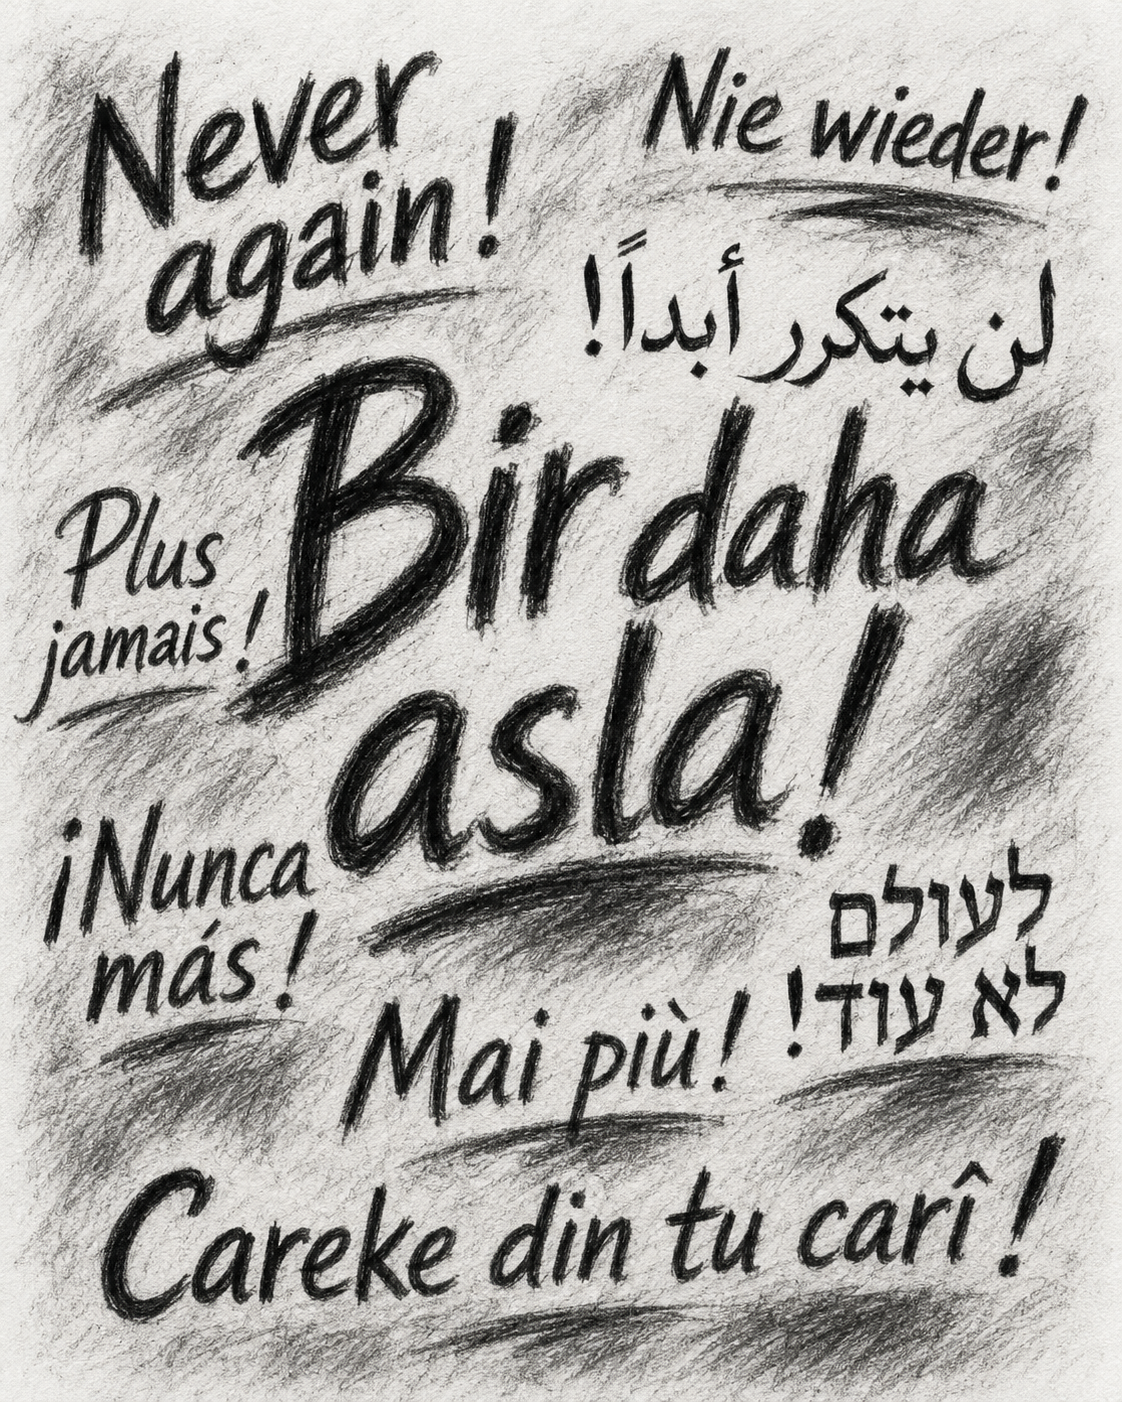 Never
again!
Nie wieder!
لن يتكرر أبداً!
Bir daha
asla!
Plus
jamais!
¡Nunca
más!
לעולם
לא עוד!
Mai più!
Careke din tu carî!